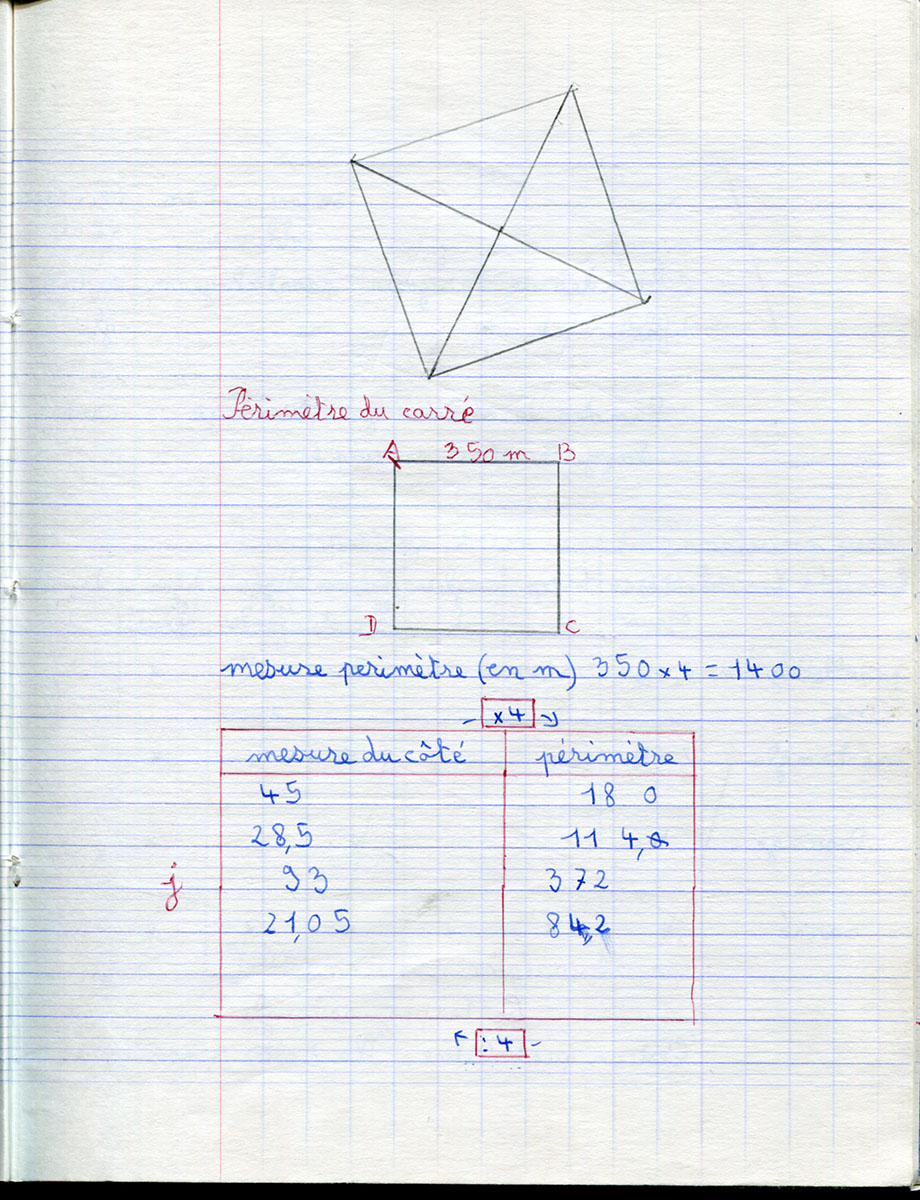 Périmètre du carré
A 350 m B
D C
mesure perimètre (en m) 350 x 4 = 1400
x4
mesure du côté périmètre
45 18 0
28,5 11 4,0
93 372
j
21,05 84,2
: 4